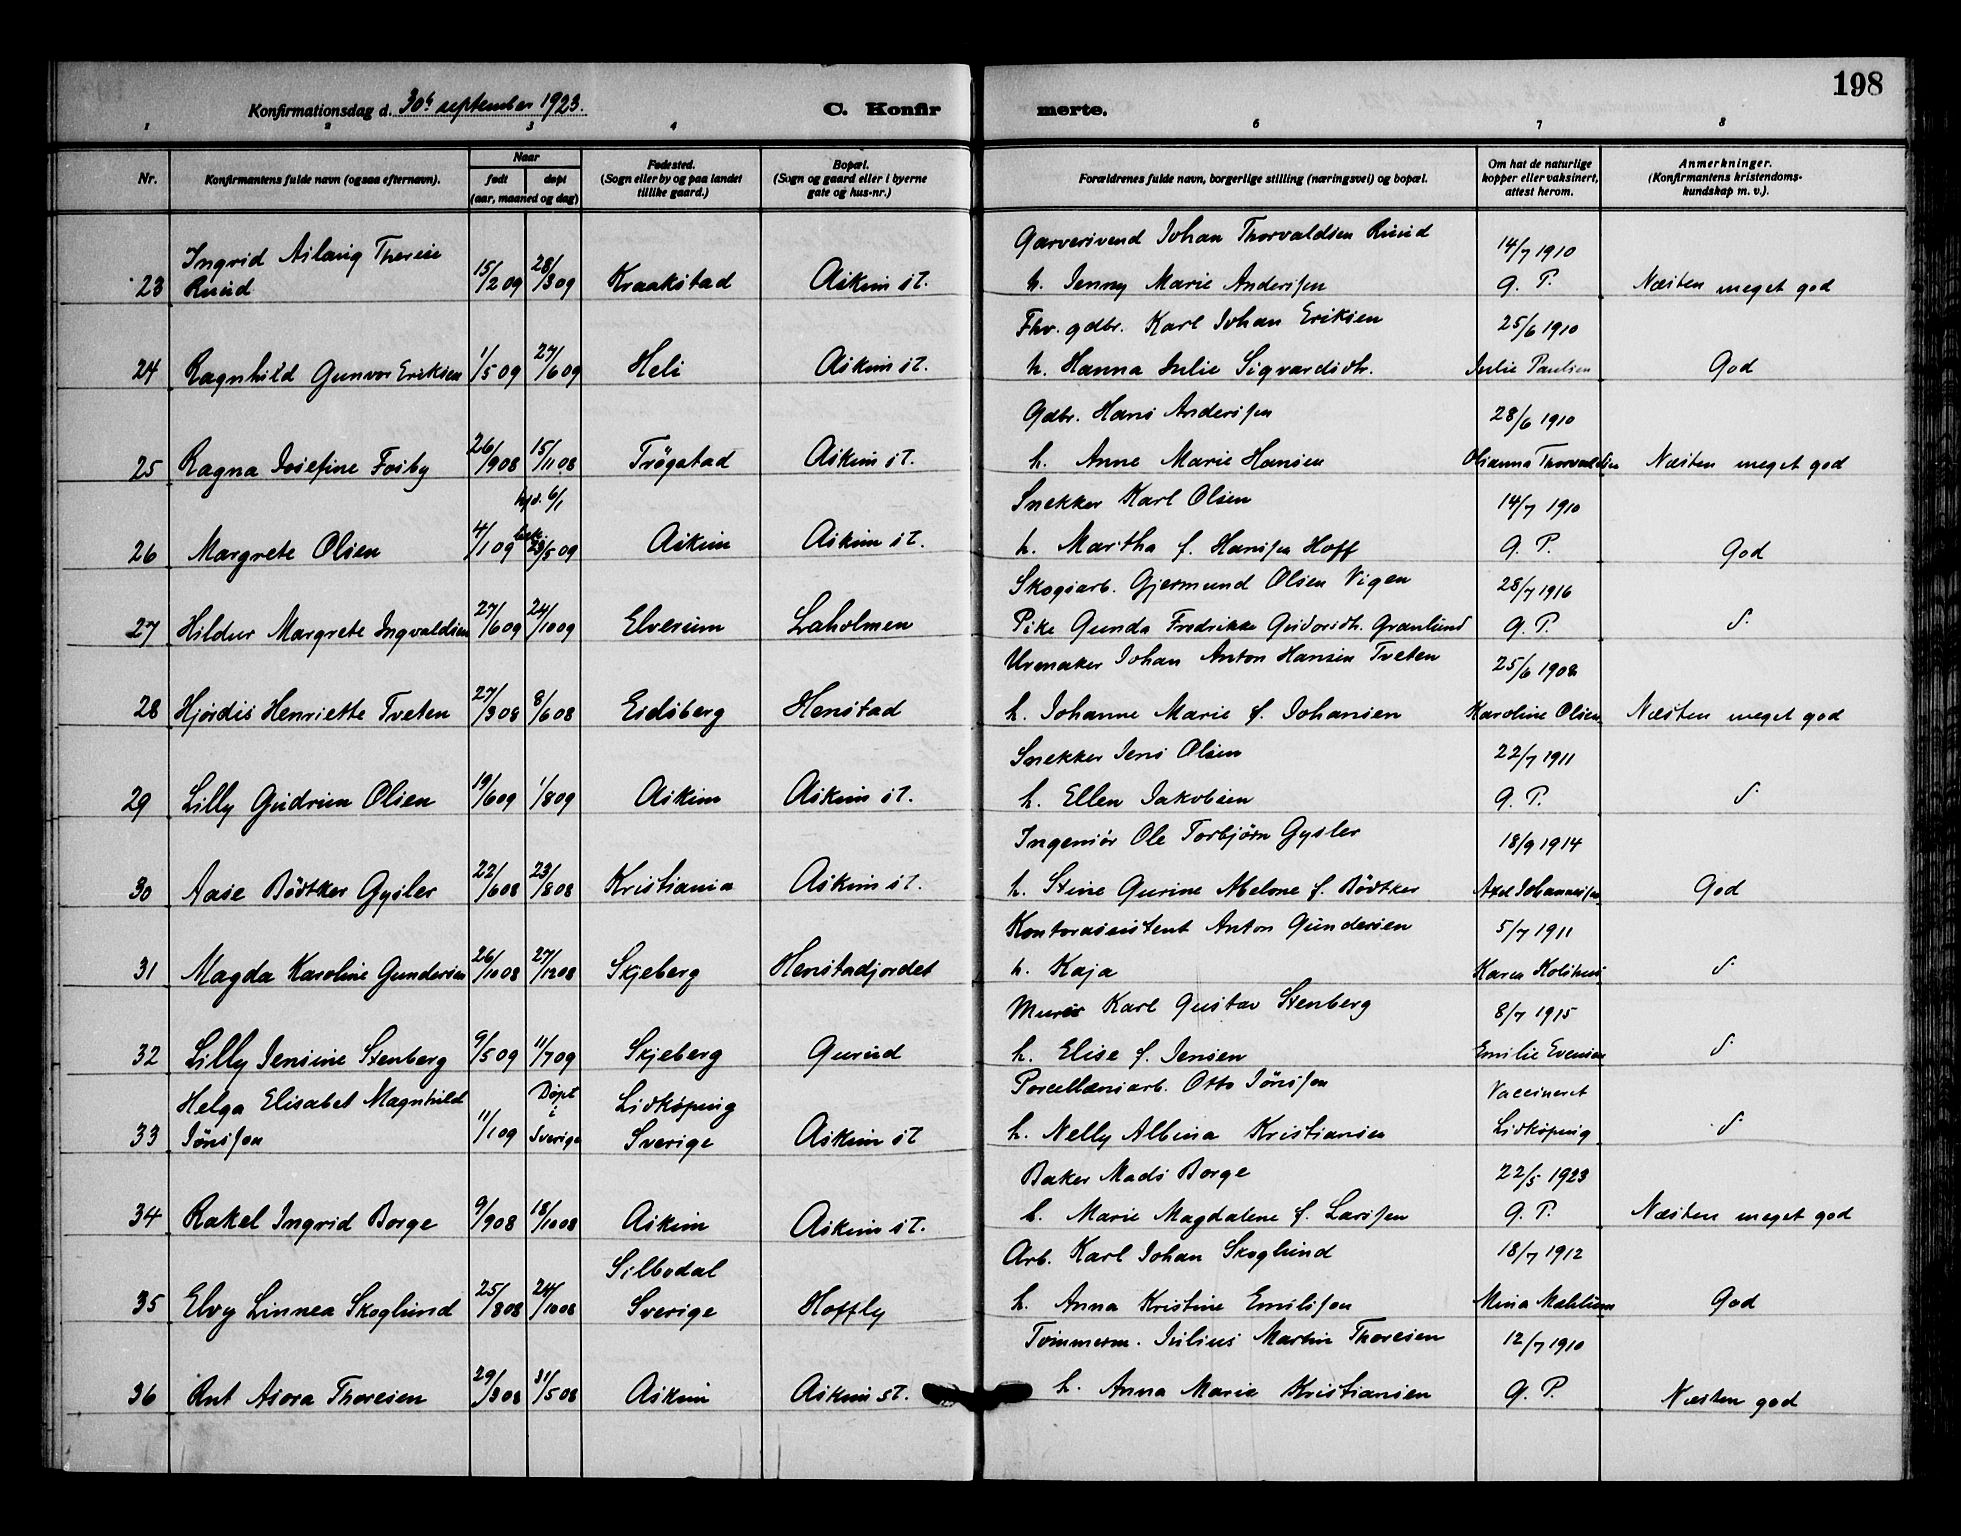 198
Konfirmationsdag d. 30t september 1923.
C. Konfir merte.
1 2 3 4 6 7 8
Nr.
Konfirmantens fulde navn (ogsaa efternavn).
Naar
født
døpt
(aar, maaned og dag)
Fødested.
(Sogn eller by og paa landet
tillike gaard.)
Bopæl.
(Sogn og gaard eller i byerne
gate og hus-nr.)
Forældrenes fulde navn, borgerlige stilling (næringsvei) og bopæl.
Om hat de naturlige
kopper eller vaksinert,
attest herom.
Anmerkninger.
(Konfirmantens kristendoms-
kundskap m. v.).
Ingrid Aslaug Therese Garverisvend Johan Thorvaldsen Ruud 14/7 1910
23 Ruud 15/2 09 28/3 09 Kraakstad Askim st. h. Jenny Marie Anderssen G. P. Næsten meget god
Fhv. gdbr. Karl Johan Eriksen 25/6 1910
24 Ragnhild Gunvor Eriksen 1/5 09 27/6 09 Heli Askim st. h. Hanna Julie Sigvardsdtr. Julie Paulsen God
Gdbr. Hans Anderssen 28/6 1910
25 Ragna Josefine Fosby 26/9 08 15/11 08 Trögstad Askim st. h. Anne Marie Hansen Olianna Thorvaldsen Næsten meget god
hjd. 6/1 Snekker Karl Olsen 14/7 1910
26 Margrete Olsen 4/1 09 bek. 23/5 09 Askim Askim st. h. Martha f. Hanssen Hoff G. P. God
Skogsarb. Gjermund Olsen Vigen 28/7 1916
27 Hildur Margrete Ingvaldsen 27/6 09 24/10 09 Elverum Laholmen Pike Gunda Fredrikke Gridorsdtr. Granlund G. P. S.
Urmaker Johan Anton Hansen Tveten 25/6 1908
28 Hjørdis Henriette Tveten 27/3 08 8/6 08 Eidsberg Henstad h. Johanne Marie f. Johansen Karoline Olsen Næsten meget god
Snekker Jens Olsen 22/7 1911
29 Lilly Gudrun Olsen 19/6 09 1/8 09 Askim Askim st. h. Ellen Jakobsen G. P. S.
Ingeniör Ole Torbjørn Gysler 18/9 1914
30 Aase Bödtker Gysler 22/6 08 23/8 08 Kristiania Askim st. h. Stine Gurine Melone f. Bödtker Axel Johannessen God
Kontorassistent Anton Gundersen 5/7 1911
31 Magda Karoline Gundersen 26/10 08 27/12 08 Skjeberg Henstadjordet h. Kaja Karen Kolshus S.
Murer Karl Gustav Stenberg 8/7 1915
32 Lilly Jensine Stenberg 9/5 09 11/7 09 Skjeberg Gurud h. Elise f. Jensen Emilie Evensen S.
Helga Elisabet Magnhild Døpt i Lidköping Porcellænsarb. Otto Jönsson Vaccineret
33 Jönsson 11/1 09 Sverige Sverige Askim st h. Nelly Albina Kristiansen Lidköping S.
Baker Mads Borge 22/5 1923
34 Rakel Ingrid Borge 9/9 08 18/10 08 Askim Askim st. h. Marie Magdalene f. Larssen G. P. Næsten meget god
Silbodal Arb. Karl Johan Skoglund 18/7 1912
35 Elvy Linnea Skoglund 25/8 08 24/10 08 Sverige Hoffly h. Anna Kristine Emilsson Mina Mæhlum God
Tømmerm. Julius Martin Thoresen 12/7 1910
36 Rut Asora Thoresen 29/3 08 31/5 08 Askim Askim st. h. Anna Marie Kristiansen G. P. Næsten god